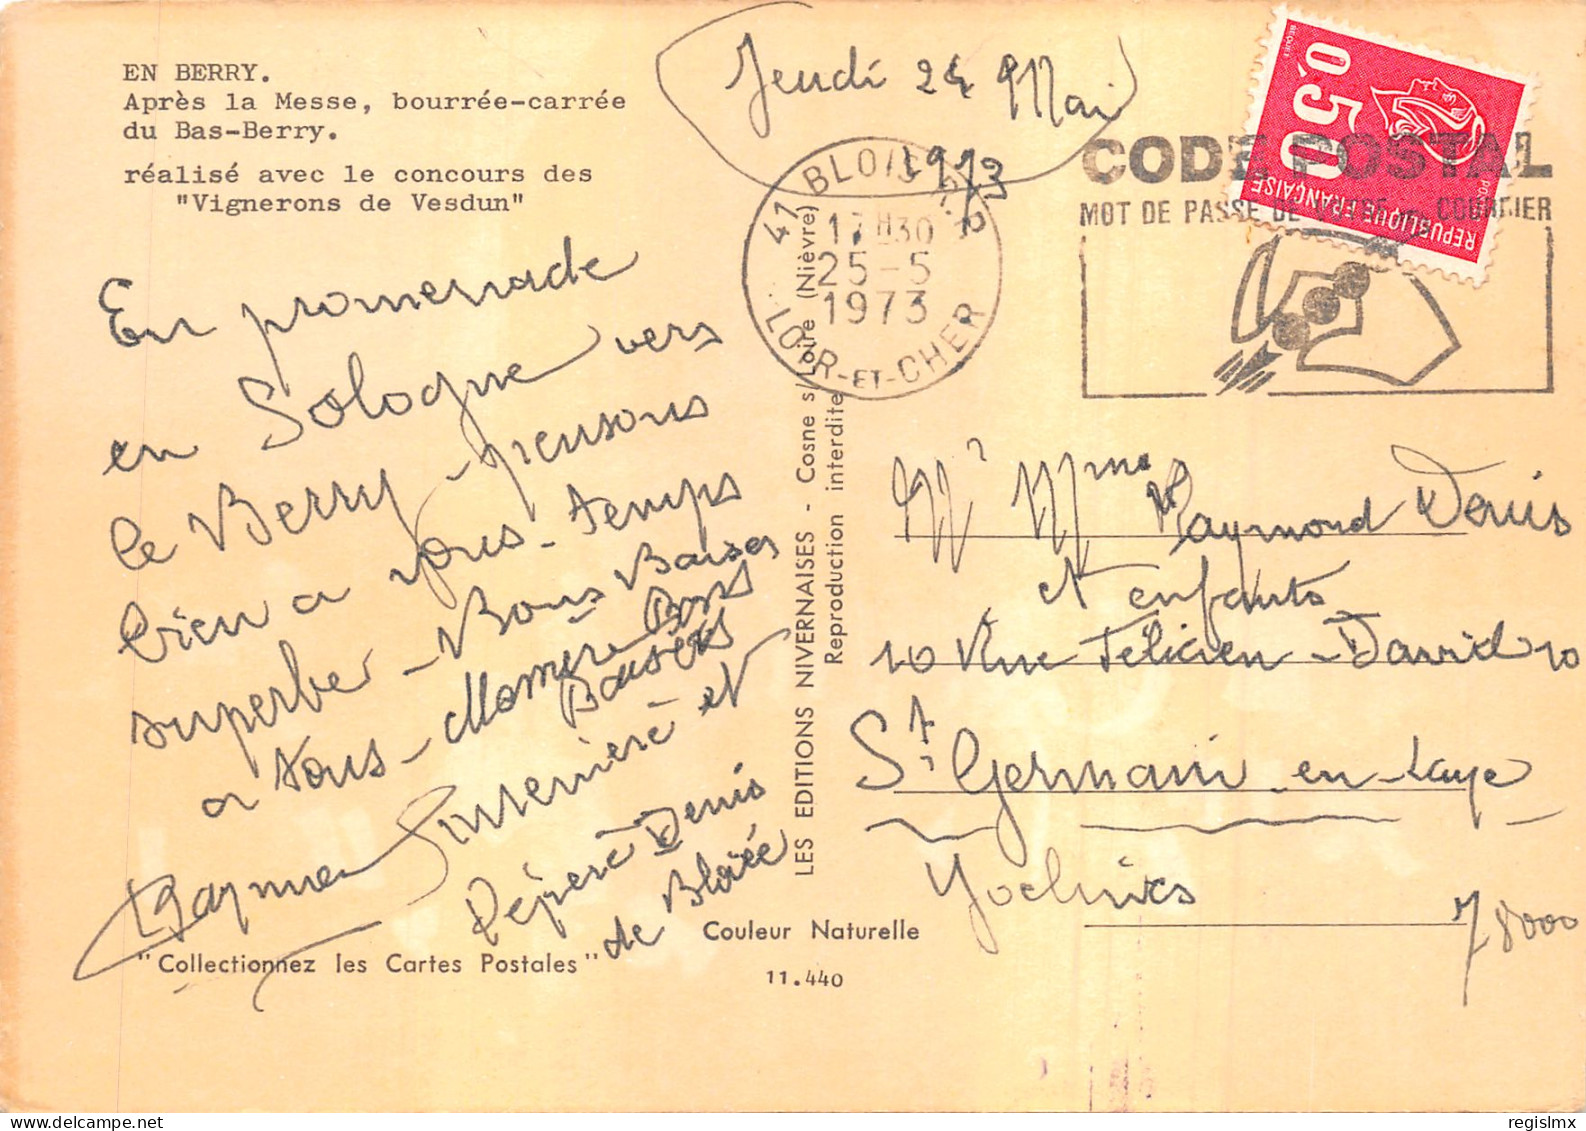 EN BERRY.
Après la Messe, bourrée-carrée
du Bas-Berry.
réalisé avec le concours des
"Vignerons de Vesdun"
Jeudi 24 Mai
1973
41 BLOIS R.P.
17H30
25-5
1973
LOIR-ET-CHER
CODE POSTAL
MOT DE PASSE DE VOTRE COURRIER
0,50
REPUBLIQUE FRANÇAISE
POSTES
BEQUET
En promenade
en Sologne vers
le Berry - pensons
bien a vous - temps
superbe - Bons Baisers
a tous - Bons
Baisers
et
Pépère Denis
de
LES EDITIONS NIVERNAISES - Cosne s/Loire (Nièvre)
Reproduction interdite
Mr Mme Raymond Denis
et enfants
10 Rue Félicien - David 10
St Germain - en - Laye
Yvelines
78000
Couleur Naturelle
"Collectionnez les Cartes Postales"
11.440
regislmx